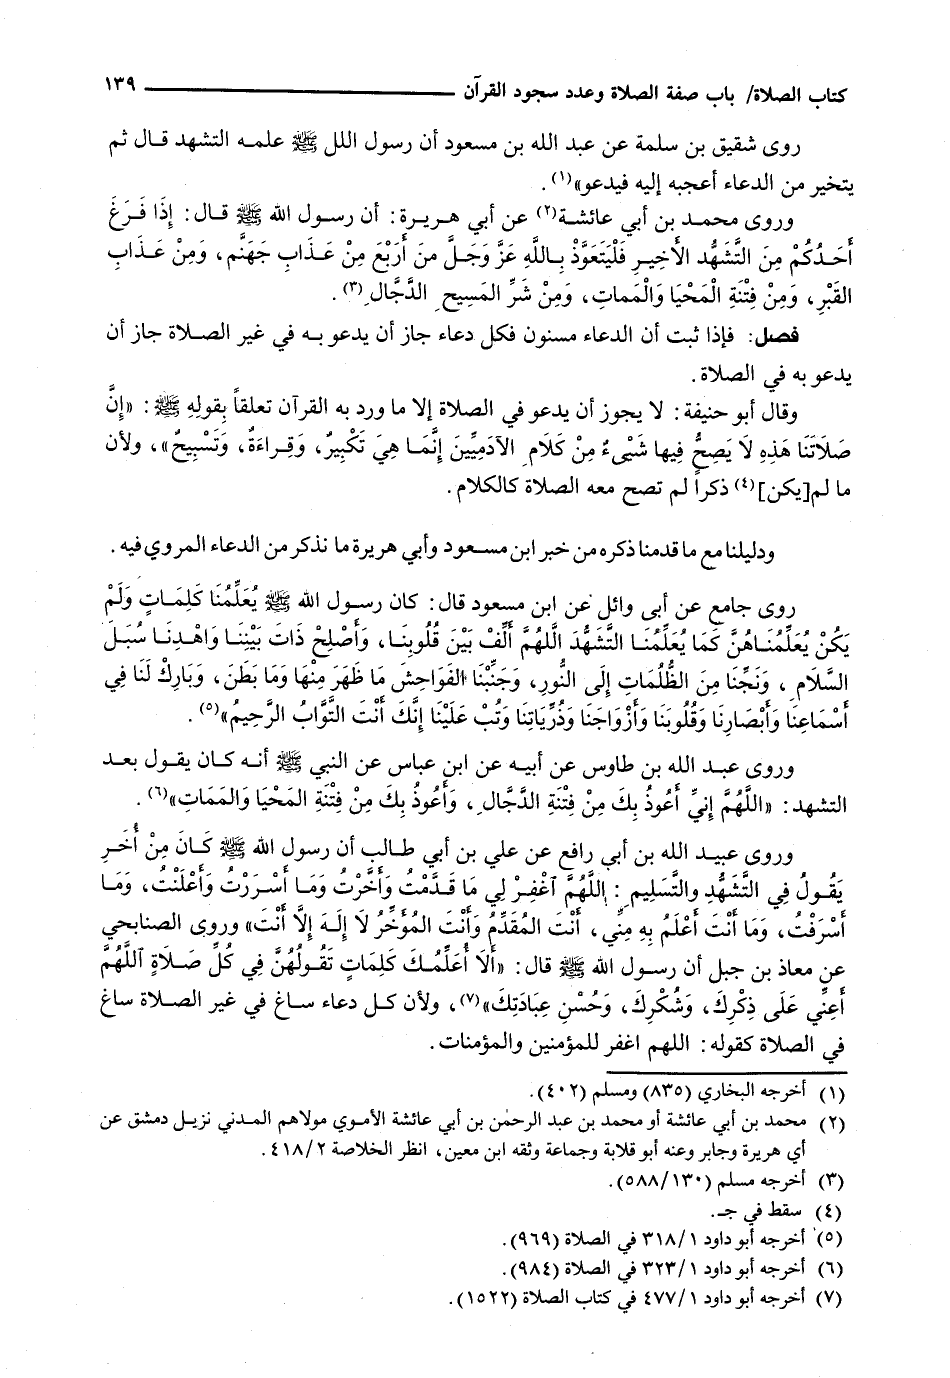 كتاب الصلاة/ باب صفة الصلاة وعدد سجود القرآن ١٣٩
روى شقيق بن سلمة عن عبد الله بن مسعود أن رسول الل ﷺ علمه التشهد قال ثم
يتخير من الدعاء أعجبه إليه فيدعو»(١).
وروى محمد بن أبي عائشة(٢) عن أبي هريرة: أن رسول الله ﷺ قال: إِذَا فَرَغَ
أَحَدُكُمْ مِنَ التَّشَهُّد الأَخِيرِ فَلْيَتَعَوَّذْ بِاللَّهِ عَزَّ وَجَلَّ من أَرْبَعٍ مِنْ عَذَابِ جَهَنَّم، وَمِنْ عَذَابِ
القَبْرِ، وَمِنْ فِتْنَةِ الْمَحْيَا وَالْمَماتِ، وَمِنْ شَرِّ المَسِيحِ الدَّجَّالِ(٣).
فصل: فإذا ثبت أن الدعاء مسنون فكل دعاء جاز أن يدعو به في غير الصلاة جاز أن
يدعو به في الصلاة.
وقال أبو حنيفة: لا يجوز أن يدعو في الصلاة إلا ما ورد به القرآن تعلقاً بِقولِهِ ﷺ: «إِنَّ
صَلَاتَنَا هَذِهِ لَا يَصِحُّ فِيها شَيْىءٌ مِنْ كَلَامِ الآدَمِيِّينَ إِنَّمَا هِيَ تَكْبِيرٌ، وَقِراءَةٌ، وَتَسْبِيحٌ»، ولأن
ما لم[يكن](٤) ذكراً لم تصح معه الصلاة كالكلام.
ودليلنا مع ما قدمنا ذكره من خبر ابن مسعود وأبي هريرة ما نذكر من الدعاء المروي فيه.
روى جامع عن أبى وائل عن ابن مسعود قال: كان رسول الله ﷺ يُعَلِّمُنَا كَلِمَاتٍ وَلَمْ
يَكُنْ يُعَلِّمُنَاهُنَّ كَمَا يُعَلِّمُنَا التَّشَهُّدَ اللَّهُمَّ أَلِّفْ بَيْنَ قُلُوبِنَا، وَأَصْلِحْ ذَاتَ بَيْنِنَا وَاهْدِنَا سُبَلَ
السَّلَامِ، وَنَجِّنَا مِنَ الظُّلُمَاتِ إِلَى النُّورِ، وَجَنِّبْنَا الفَوَاحِشَ مَا ظَهَرَ مِنْهَا وَمَا بَطَنَ، وَبَارِكْ لَنَا فِي
أَسْمَاعِنَا وَأَبْصَارِنَا وَقُلُوبَنَا وَأَزْوَاجَنَا وَذُرِّيَاتِنَا وَتُبْ عَلَيْنَا إِنَّكَ أَنْتَ التَّوَّابُ الرَّحِيمُ»(٥).
وروى عبد الله بن طاوس عن أبيه عن ابن عباس عن النبي ﷺ أنه كان يقول بعد
التشهد: «اللَّهُمَّ إِنيِّ أَعُوذُ بِكَ مِنْ فِتْنَةِ الدَّجَّالِ، وَأَعُوذُ بِكَ مِنْ فِتْنَةِ المَحْيَا وَالمَمَاتِ»(٦).
وروى عبيد الله بن أبي رافع عن علي بن أبي طالب أن رسول الله ﷺ كَانَ مِنْ أُخَرِ
يَقُولُ فِي التَّشَهُّدِ والتَّسْلِيمِ: اللَّهُمَّ اَغْفِرْ لِي مَا قَدَّمْتُ وَأَخَّرْتُ وَمَا أَسْرَرْتُ وَأَعْلَنْتُ، وَمَا
أَسْرَفْتُ، وَمَا أَنْتَ أَعْلَمُ بِهِ مِنِّي، أَنْتَ المُقَدِّمُ وَأَنْتَ المُؤَخِّرُ لَا إِلَهَ إِلَّا أَنْتَ» وروى الصنابحي
عن معاذ بن جبل أن رسول الله ﷺ قال: «أَلَا أُعَلِّمُكَ كَلِمَاتٍ تَقُولُهُنَّ فِي كُلِّ صَلَاةٍ اَللَّهُمَّ
أَعِنِّي عَلَى ذِكْرِكَ، وَشُكْرِكَ، وَحُسْنِ عِبَادَتِكَ»(٧)، ولأن كل دعاء ساغ في غير الصلاة ساغ
في الصلاة كقوله: اللهم اغفر للمؤمنين والمؤمنات.
(١) أخرجه البخاري (٨٣٥) ومسلم (٤٠٢).
(٢) محمد بن أبي عائشة أو محمد بن عبد الرحمٰن بن أبي عائشة الأموي مولاهم المدني نزيل دمشق عن
أي هريرة وجابر وعنه أبو قلابة وجماعة وثقه ابن معين، انظر الخلاصة ٤١٨/٢.
(٣) أخرجه مسلم (٥٨٨/١٣٠).
(٤) سقط في جـ.
(٥) أخرجه أبو داود ٣١٨/١ في الصلاة (٩٦٩).
(٦) أخرجه أبو داود ٣٢٣/١ في الصلاة (٩٨٤).
(٧) أخرجه أبو داود ٤٧٧/١ في كتاب الصلاة (١٥٢٢).